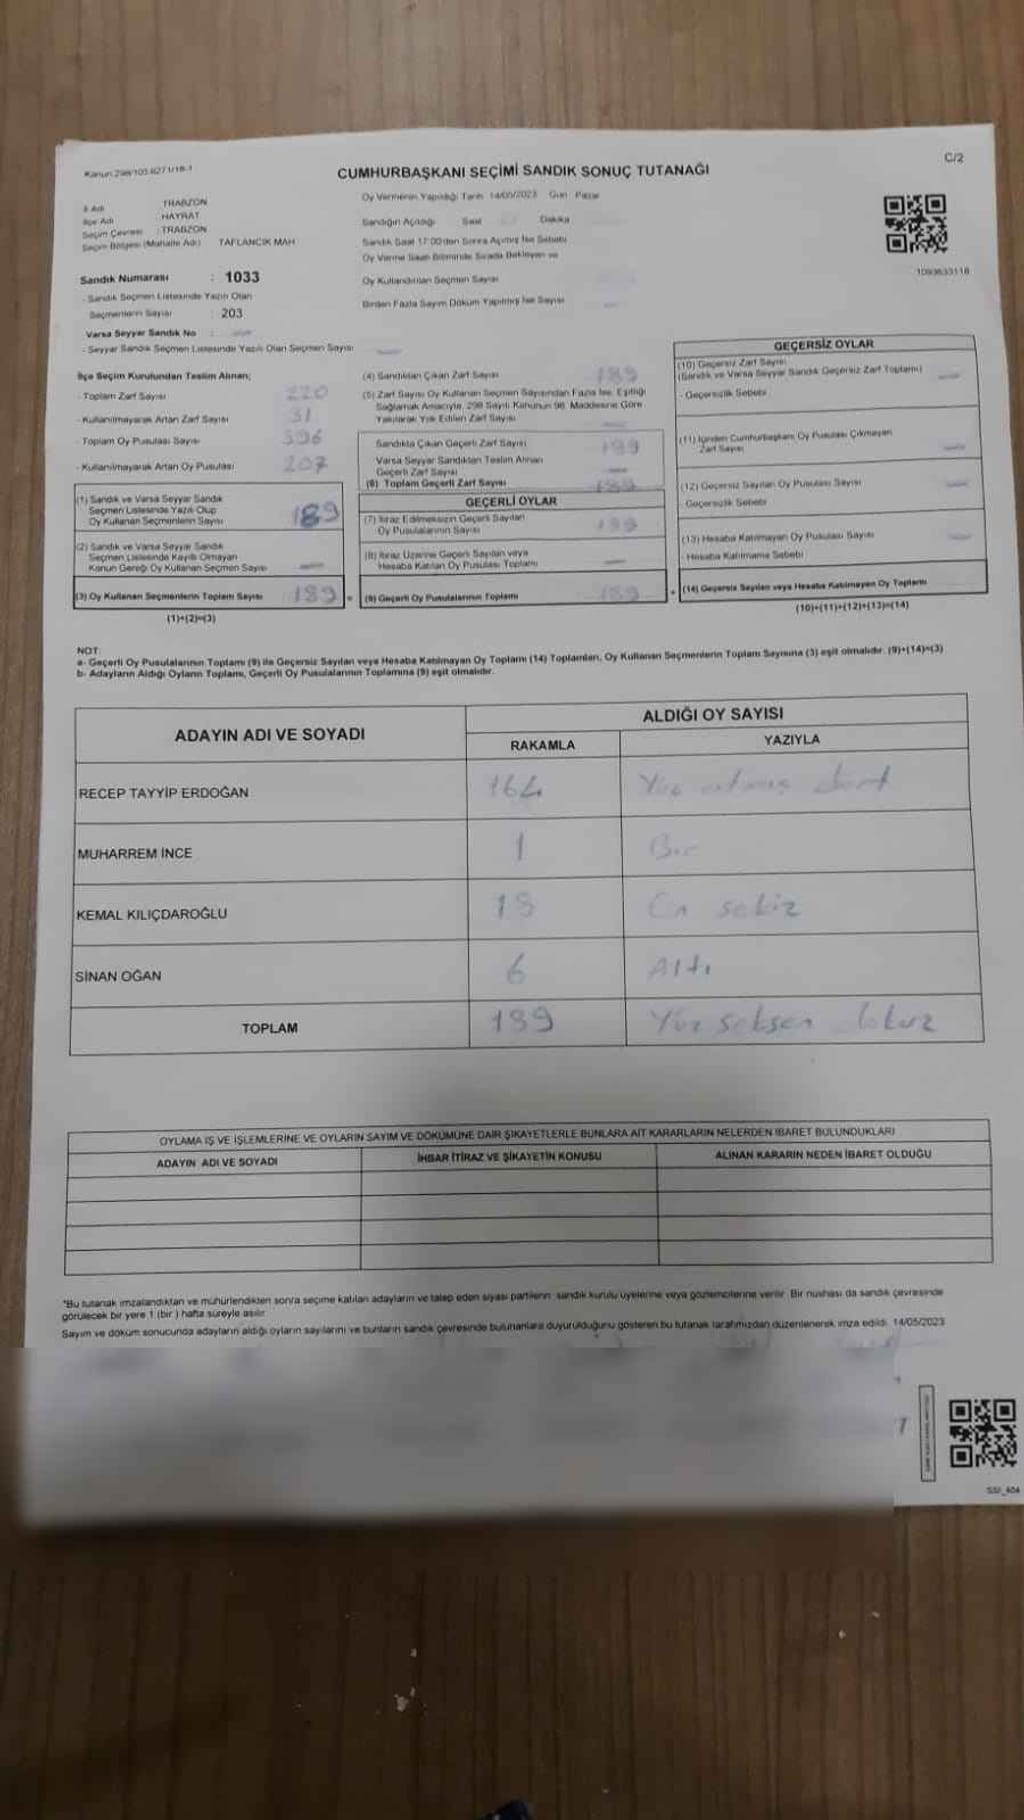 Kanun:298/103-6271/18-1
C/2
CUMHURBAŞKANI SEÇİMİ SANDIK SONUÇ TUTANAĞI
İl Adı : TRABZON
İlçe Adı : HAYRAT
Seçim Çevresi : TRABZON
Seçim Bölgesi (Mahalle Adı) TAFLANCIK MAH
Sandık Numarası : 1033
- Sandık Seçmen Listesinde Yazılı Olan
Seçmenlerin Sayısı : 203
Varsa Seyyar Sandık No :
- Seyyar Sandık Seçmen Listesinde Yazılı Olan Seçmen Sayısı
Oy Vermenin Yapıldığı Tarih 14/05/2023 Gün Pazar
Sandığın Açıldığı Saat Dakika
Sandık Saat 17:00'den Sonra Açılmış İse Sebebi
Oy Verme Saati Bitiminde Sırada Bekleyen ve
Oy Kullandırılan Seçmen Sayısı
Birden Fazla Sayım Döküm Yapılmış İse Sayısı
1093633118
İlçe Seçim Kurulundan Teslim Alınan;
- Toplam Zarf Sayısı 220
- Kullanılmayarak Artan Zarf Sayısı 31
- Toplam Oy Pusulası Sayısı 396
- Kullanılmayarak Artan Oy Pusulası 207
(1) Sandık ve Varsa Seyyar Sandık
Seçmen Listesinde Yazılı Olup
Oy Kullanan Seçmenlerin Sayısı 189
(2) Sandık ve Varsa Seyyar Sandık
Seçmen Listesinde Kayıtlı Olmayan
Kanun Gereği Oy Kullanan Seçmen Sayısı
(3) Oy Kullanan Seçmenlerin Toplam Sayısı 189 =
(1)+(2)=(3)
(4) Sandıktan Çıkan Zarf Sayısı 189
(5) Zarf Sayısı Oy Kullanan Seçmen Sayısından Fazla İse; Eşitliği
Sağlamak Amacıyla, 298 Sayılı Kanunun 98. Maddesine Göre
Yakılarak Yok Edilen Zarf Sayısı
Sandıkta Çıkan Geçerli Zarf Sayısı 189
Varsa Seyyar Sandıktan Teslim Alınan
Geçerli Zarf Sayısı
(6) Toplam Geçerli Zarf Sayısı 189
GEÇERLİ OYLAR
(7) İtiraz Edilmeksizin Geçerli Sayılan
Oy Pusulalarının Sayısı 189
(8) İtiraz Üzerine Geçerli Sayılan veya
Hesaba Katılan Oy Pusulası Toplamı
(9) Geçerli Oy Pusulalarının Toplamı 189 +
GEÇERSİZ OYLAR
(10) Geçersiz Zarf Sayısı
(Sandık ve Varsa Seyyar Sandık Geçersiz Zarf Toplamı)
- Geçersizlik Sebebi
(11) İçinden Cumhurbaşkanı Oy Pusulası Çıkmayan
Zarf Sayısı
(12) Geçersiz Sayılan Oy Pusulası Sayısı
- Geçersizlik Sebebi
(13) Hesaba Katılmayan Oy Pusulası Sayısı
- Hesaba Katılmama Sebebi
(14) Geçersiz Sayılan veya Hesaba Katılmayan Oy Toplamı
(10)+(11)+(12)+(13)=(14)
NOT:
a- Geçerli Oy Pusulalarının Toplamı (9) ile Geçersiz Sayılan veya Hesaba Katılmayan Oy Toplamı (14) Toplamları, Oy Kullanan Seçmenlerin Toplam Sayısına (3) eşit olmalıdır. (9)+(14)=(3)
b- Adayların Aldığı Oyların Toplamı, Geçerli Oy Pusulalarının Toplamına (9) eşit olmalıdır.
ADAYIN ADI VE SOYADI
ALDIĞI OY SAYISI
RAKAMLA YAZIYLA
RECEP TAYYİP ERDOĞAN 164 Yüz altmış dört
MUHARREM İNCE 1 Bir
KEMAL KILIÇDAROĞLU 18 On sekiz
SİNAN OĞAN 6 Altı
TOPLAM 189 Yüz seksen dokuz
OYLAMA İŞ VE İŞLEMLERİNE VE OYLARIN SAYIM VE DÖKÜMÜNE DAİR ŞİKAYETLERLE BUNLARA AİT KARARLARIN NELERDEN İBARET BULUNDUKLARI
ADAYIN ADI VE SOYADI İHBAR İTİRAZ VE ŞİKAYETİN KONUSU ALINAN KARARIN NEDEN İBARET OLDUĞU
*Bu tutanak imzalandıktan ve mühürlendikten sonra seçime katılan adayların ve talep eden siyasi partilerin sandık kurulu üyelerine veya gözlemcilerine verilir. Bir nüshası da sandık çevresinde
görülecek bir yere 1 (bir ) hafta süreyle asılır.
Sayım ve döküm sonucunda adayların aldığı oyların sayılarını ve bunların sandık çevresinde bulunanlara duyurulduğunu gösteren bu tutanak tarafımızdan düzenlenerek imza edildi. 14/05/2023